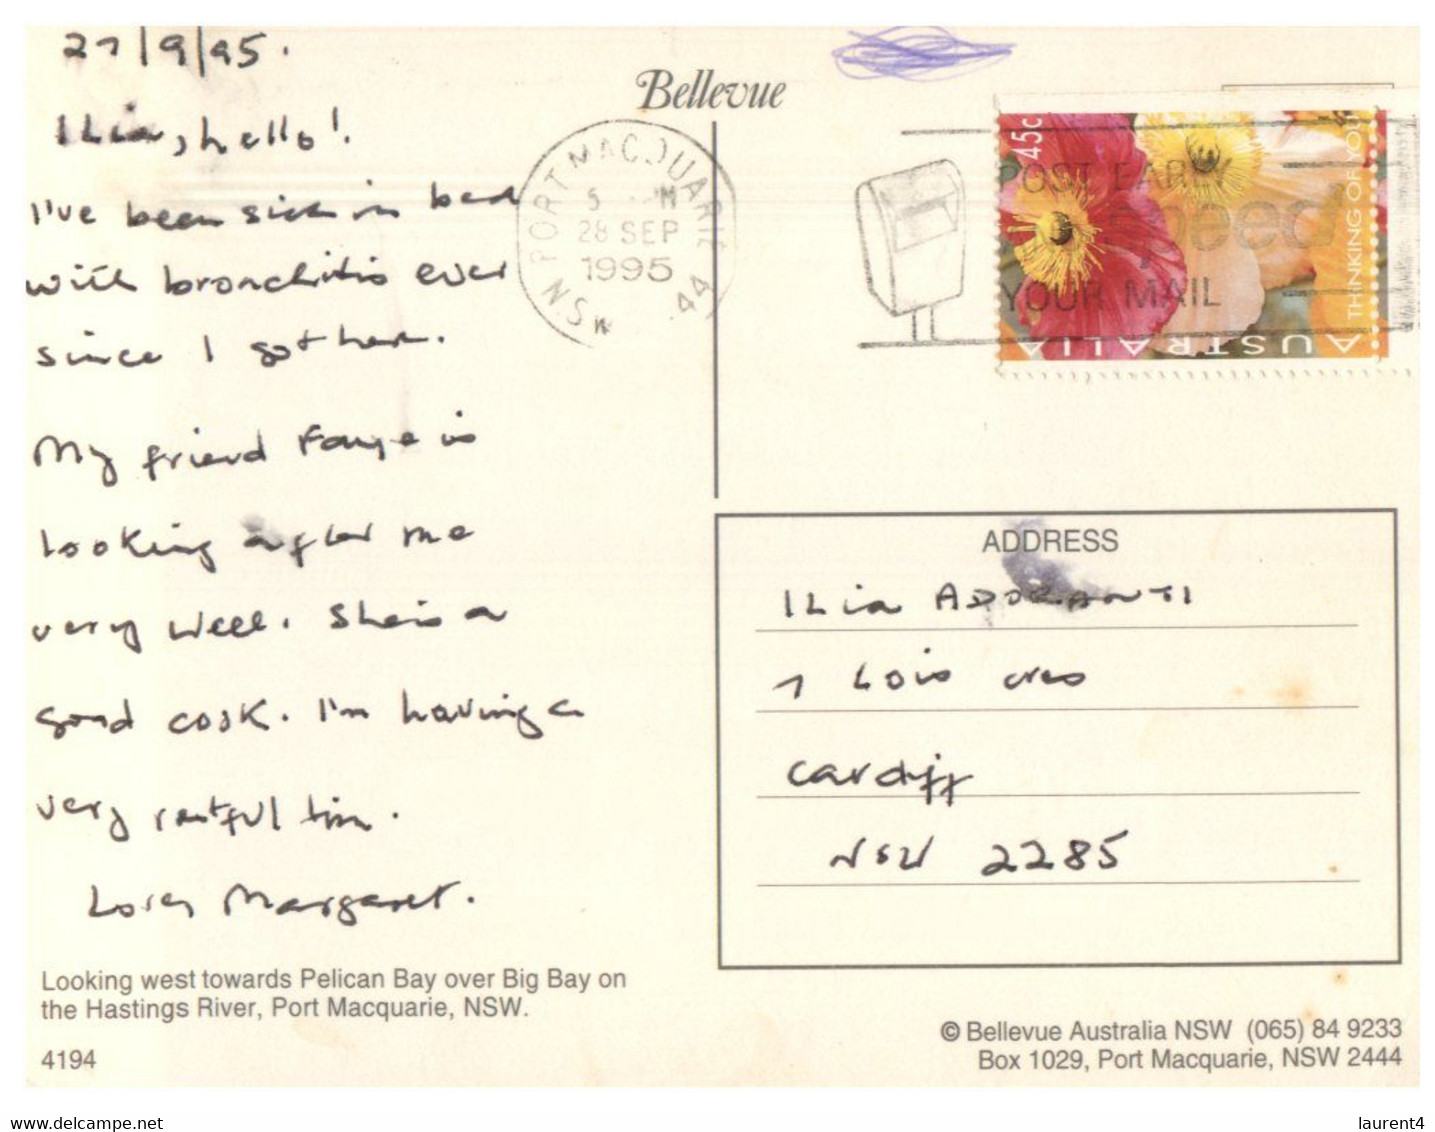 27/9/95.
Ilia, hello!
I've been sick in bed
with bronchitis ever
since I got here.
My friend Faye is
looking after me
very well. She is a
good cook. I'm having a
very restful time.
Love, Margaret.
Looking west towards Pelican Bay over Big Bay on
the Hastings River, Port Macquarie, NSW.
4194
Bellevue
PORT MACQUARIE
28 SEP
1995
NSW 2444
POST EARLY
Speed
YOUR MAIL
45c
THINKING OF YOU
AUSTRALIA
ADDRESS
Ilia ADORANTI
7 Lois Cres
Cardiff
NSW 2285
© Bellevue Australia NSW (065) 84 9233
Box 1029, Port Macquarie, NSW 2444
www.delcampe.net
laurent4